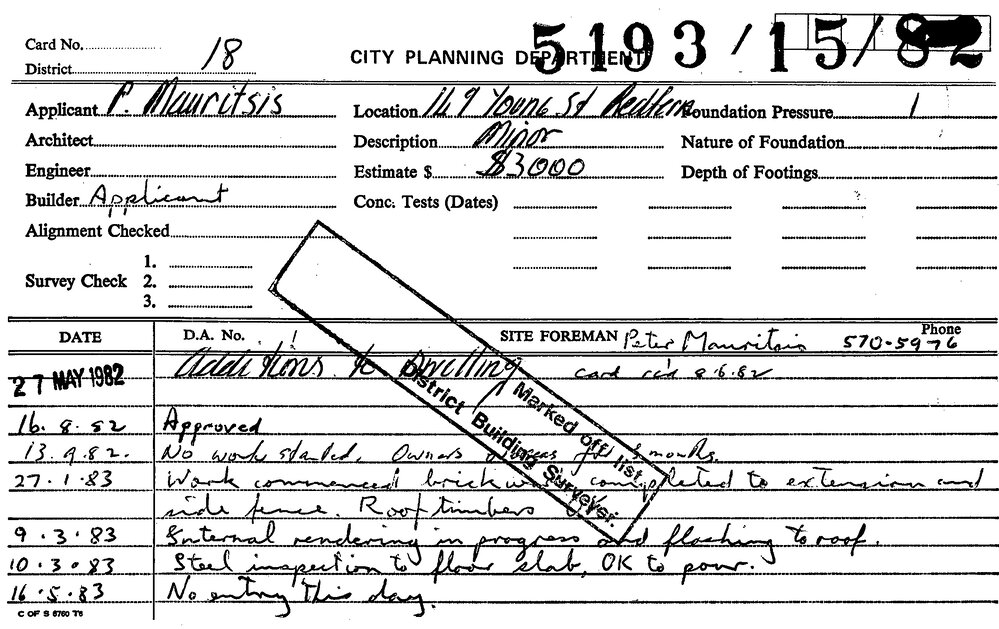 Card No.
5193/15/82
District 18
CITY PLANNING DEPARTMENT
Applicant P. Mauritsis
Location 149 Young St Redfern
Foundation Pressure 1
Architect
Description Minor
Nature of Foundation
Engineer
Estimate $ $3000
Depth of Footings
Builder Applicant
Conc. Tests (Dates)
Alignment Checked
Survey Check
1.
2.
3.
DATE
D.A. No.
SITE FOREMAN Peter Mauritsis
Phone
570-5976
27 MAY 1982
Additions to Dwelling card rc'd 8.6.82
Marked off list.
District Building Surveyor.
16.8.82 Approved
13.9.82. No work started. Owners overseas for months.
27.1.83 Work commenced brickwork completed to extension and
side fence. Roof timbers
9.3.83 Internal rendering in progress and flashing to roof.
10.3.83 Steel inspection to floor slab, OK to pour.
16.5.83 No entry this day.
C OF S 6760 T6